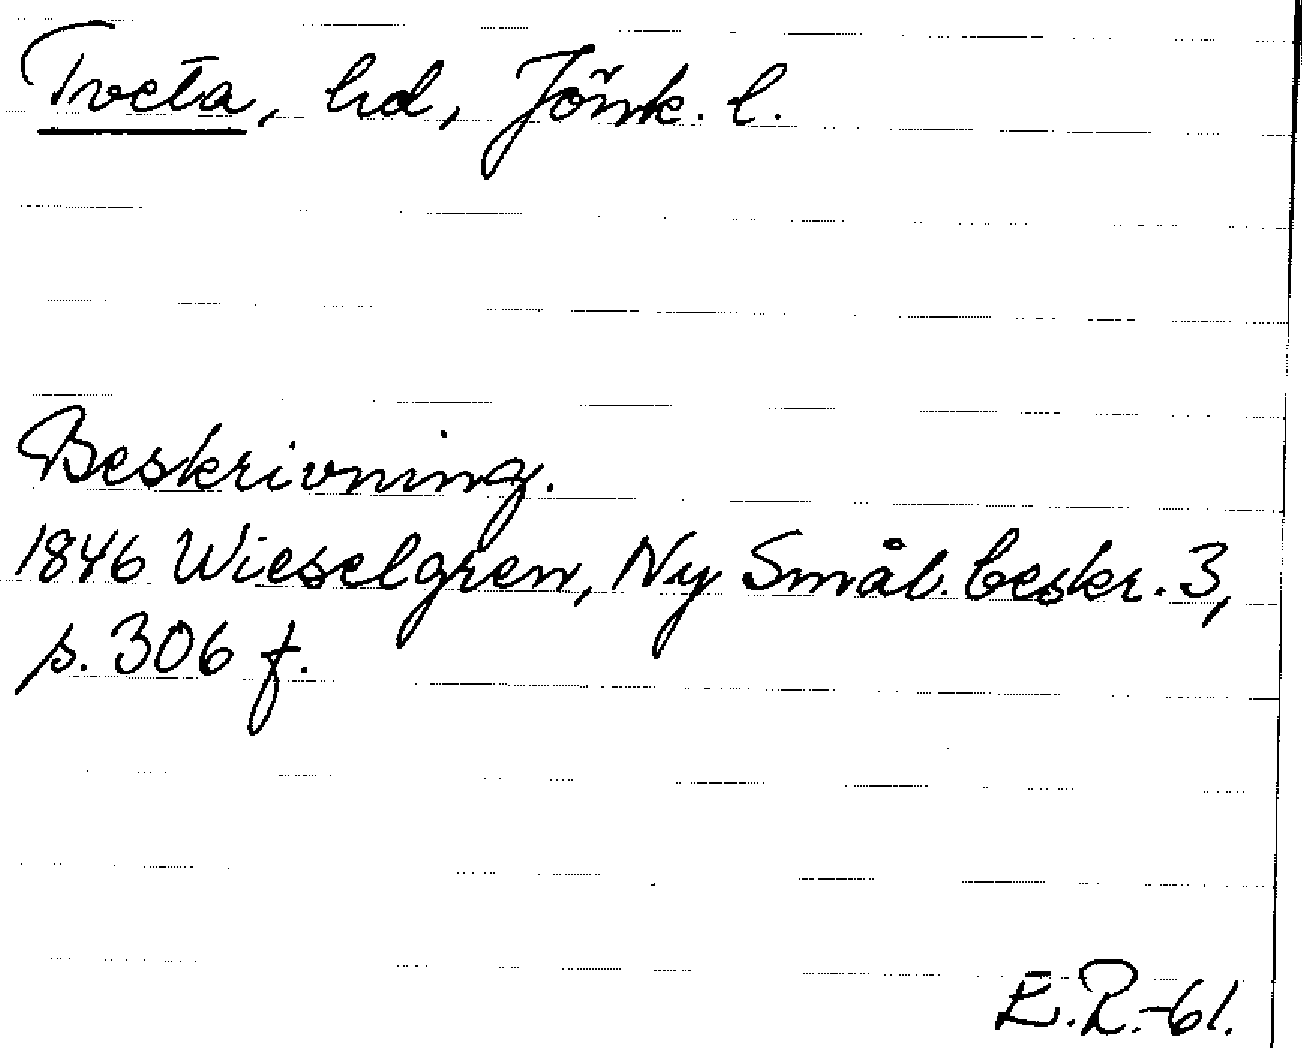 Tveta, hd, Jönk. l.
Beskrivning.
1846 Wieselgren, Ny Smål. beskr. 3,
s. 306 f.
E.R.-61.